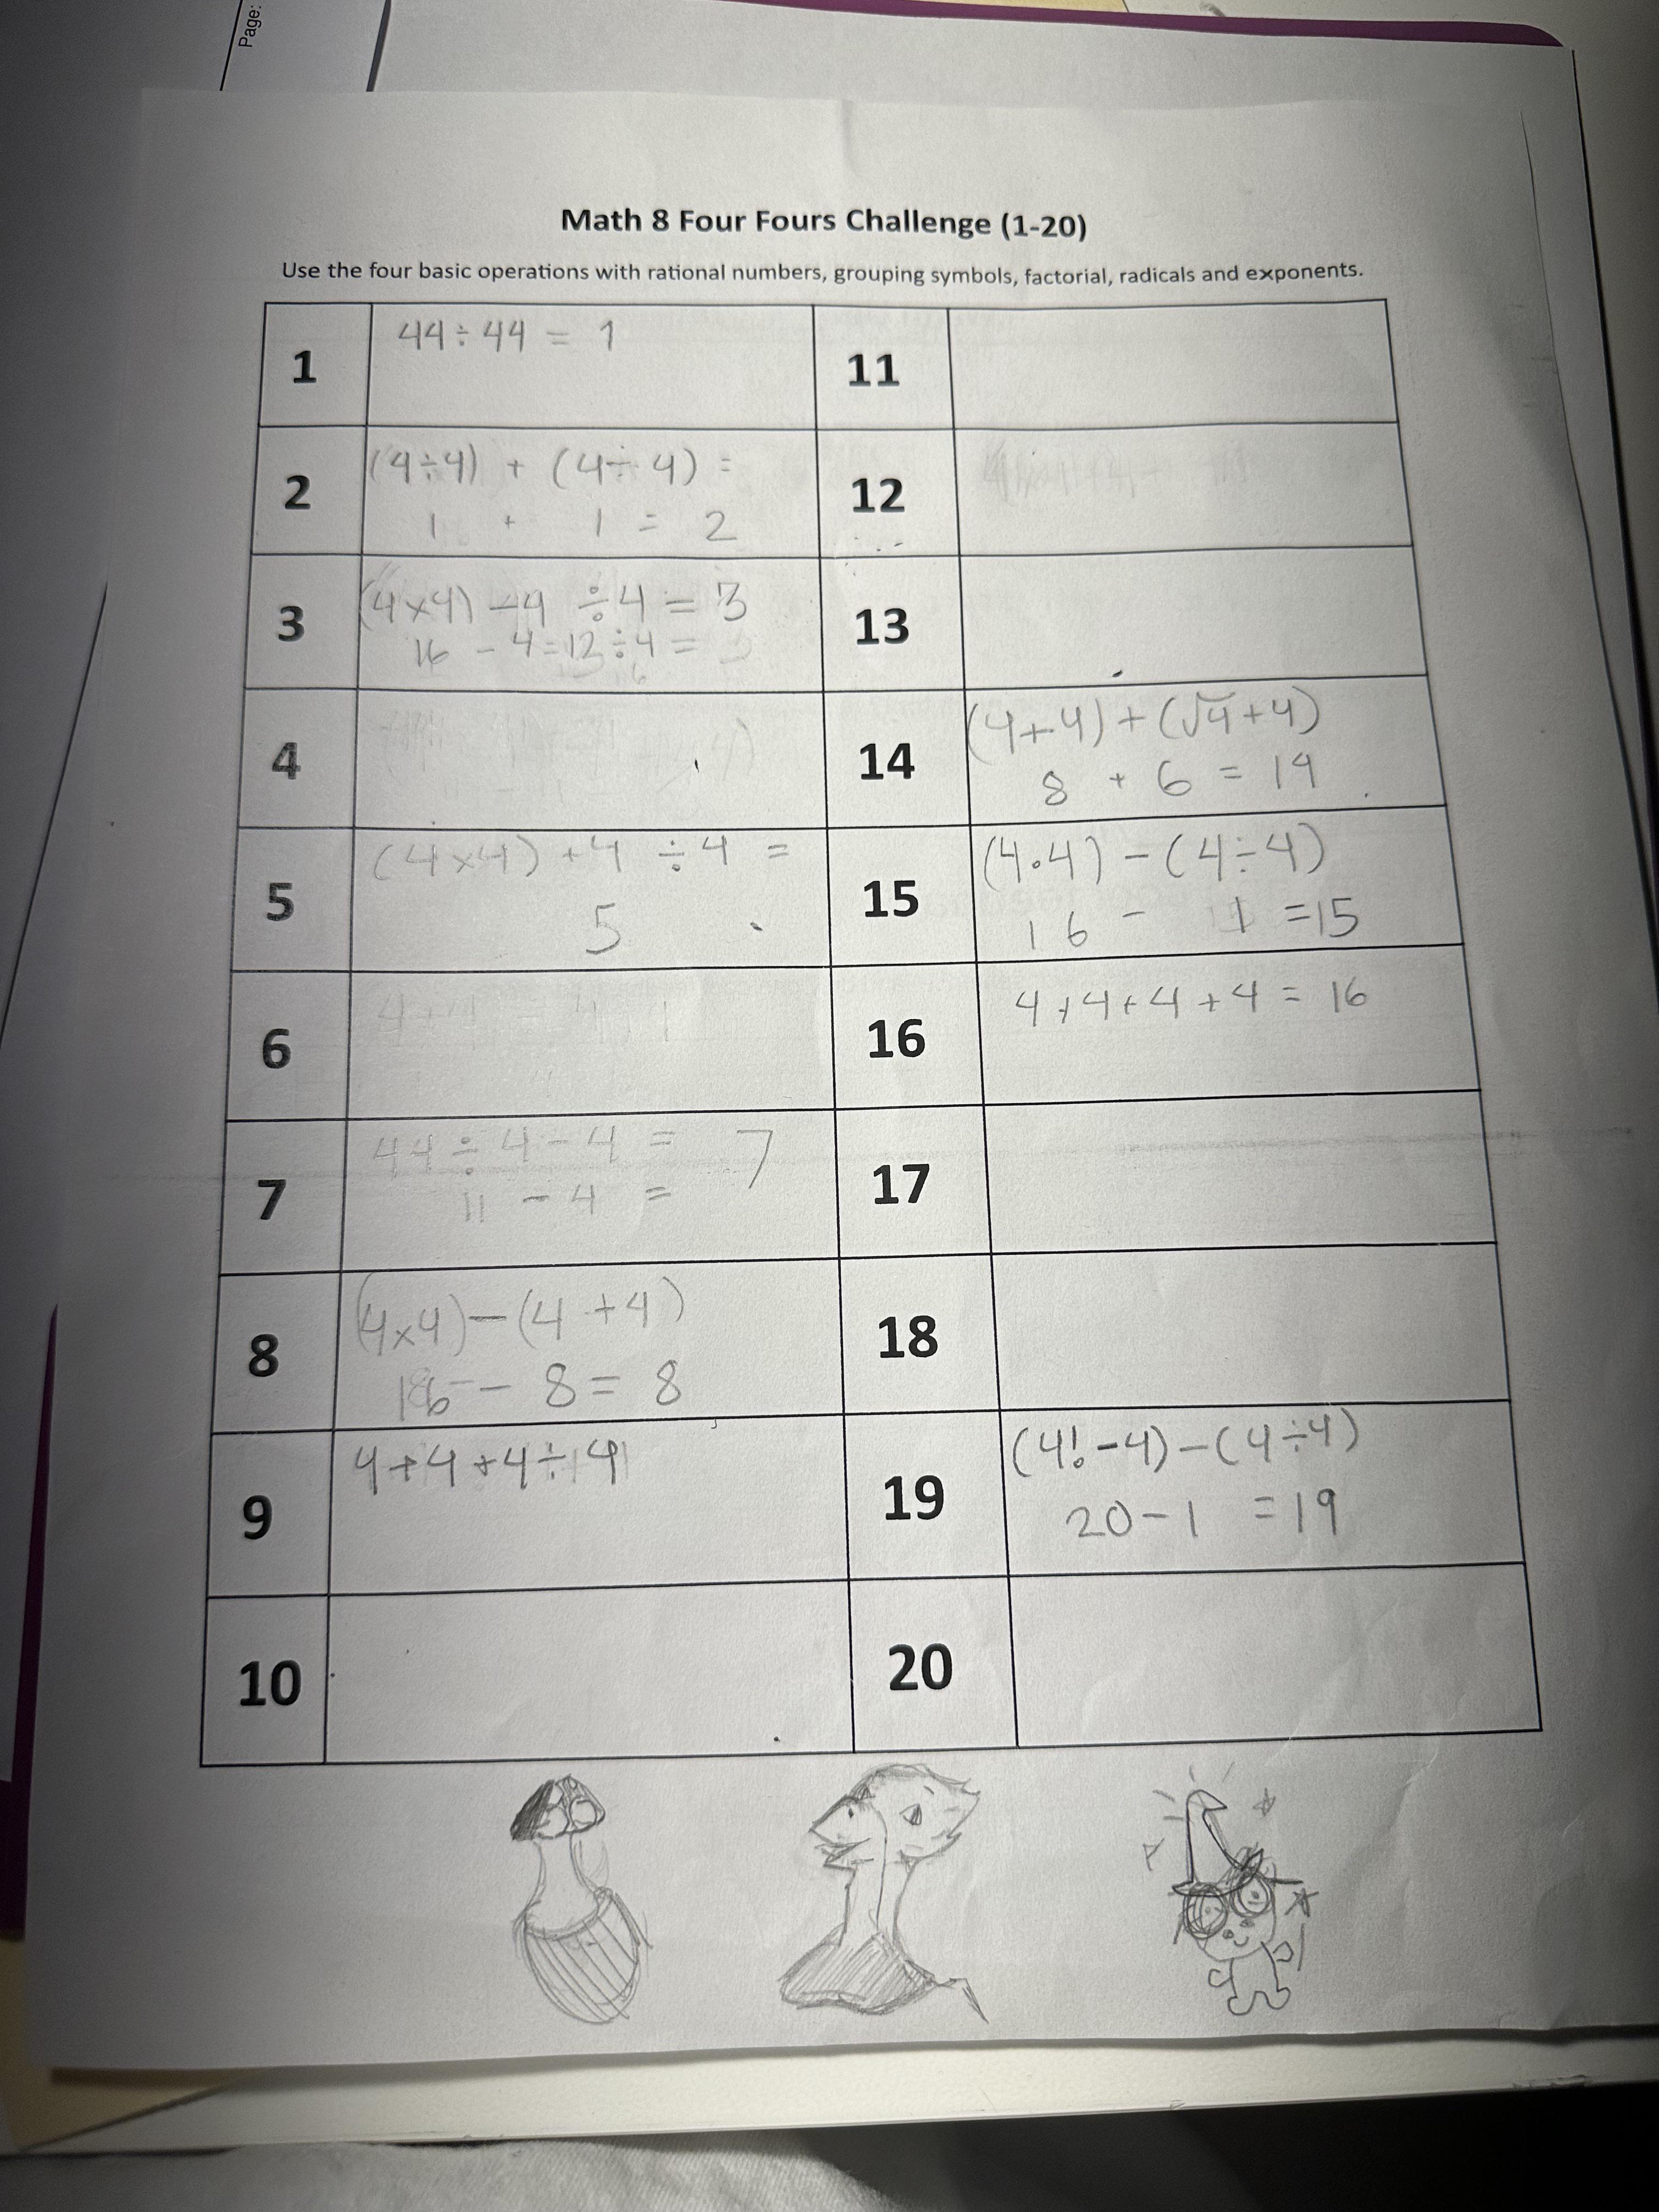 Page:
Math 8 Four Fours Challenge (1-20)
Use the four basic operations with rational numbers, grouping symbols, factorial, radicals and exponents.
1
44÷44 = 1
11
2
(4÷4) + (4÷4) =
1 + 1 = 2
12
3
(4×4) -4 ÷4 = 3
16 - 4=12÷4 =
13
4
14
(4+4)+(√4+4)
8 + 6 = 14
5
(4×4) +4 ÷4 =
5
15
(4•4) - (4÷4)
16 - 1 =15
6
16
4+4+4+4 = 16
7
44÷4-4 = 7
11 - 4 =
17
8
(4×4)-(4+4)
16 - 8 = 8
18
9
4+4+4÷4
19
(4!-4)-(4÷4)
20-1 =19
10
20